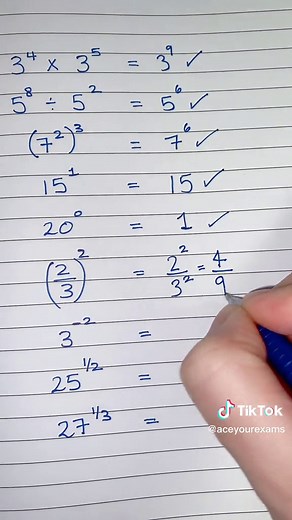 3⁴ × 3⁵ = 3⁹ ✓
5⁸ ÷ 5² = 5⁶ ✓
(7²)³ = 7⁶ ✓
15¹ = 15 ✓
20⁰ = 1 ✓
(2/3)² = 2²/3² = 4/9
3⁻² =
25^1/2 =
27^1/3 =
TikTok
@aceyourexams